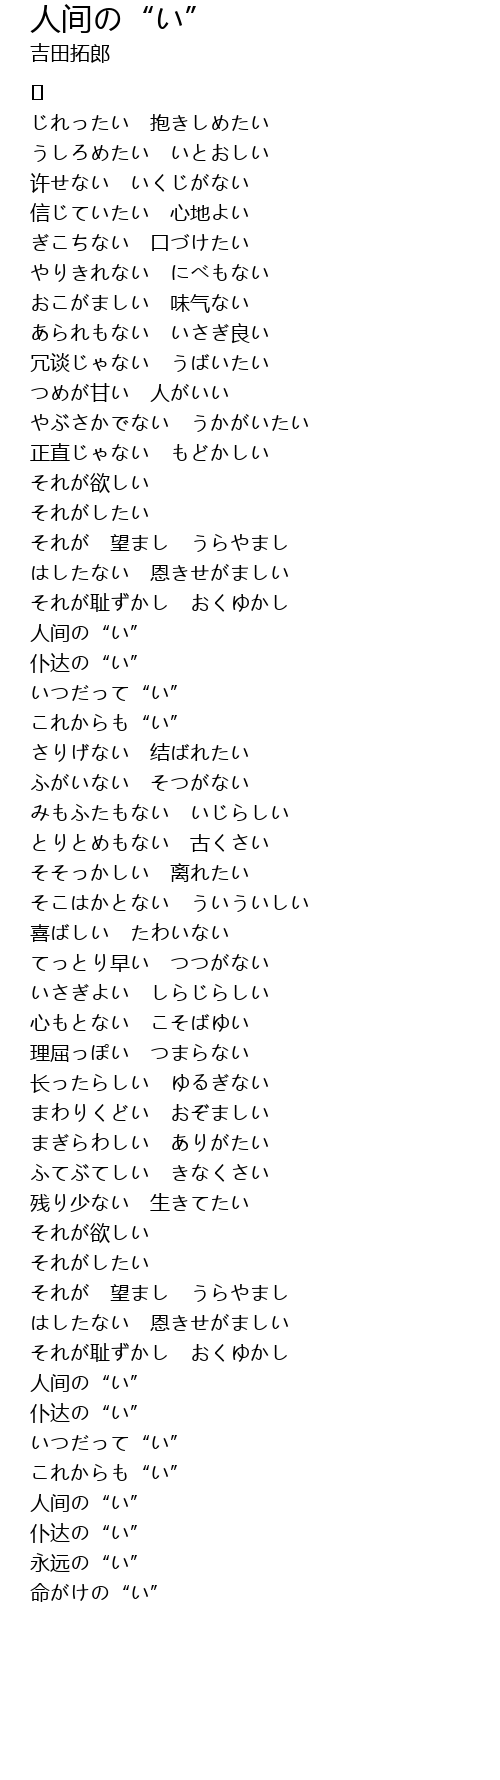 人间の“い”
吉田拓郎
じれったい　抱きしめたい
うしろめたい　いとおしい
许せない　いくじがない
信じていたい　心地よい
ぎこちない　口づけたい
やりきれない　にべもない
おこがましい　味气ない
あられもない　いさぎ良い
冗谈じゃない　うばいたい
つめが甘い　人がいい
やぶさかでない　うかがいたい
正直じゃない　もどかしい
それが欲しい
それがしたい
それが　望まし　うらやまし
はしたない　恩きせがましい
それが耻ずかし　おくゆかし
人间の“い”
仆达の“い”
いつだって“い”
これからも“い”
さりげない　结ばれたい
ふがいない　そつがない
みもふたもない　いじらしい
とりとめもない　古くさい
そそっかしい　离れたい
そこはかとない　ういういしい
喜ばしい　たわいない
てっとり早い　つつがない
いさぎよい　しらじらしい
心もとない　こそばゆい
理屈っぽい　つまらない
长ったらしい　ゆるぎない
まわりくどい　おぞましい
まぎらわしい　ありがたい
ふてぶてしい　きなくさい
残り少ない　生きてたい
それが欲しい
それがしたい
それが　望まし　うらやまし
はしたない　恩きせがましい
それが耻ずかし　おくゆかし
人间の“い”
仆达の“い”
いつだって“い”
これからも“い”
人间の“い”
仆达の“い”
永远の“い”
命がけの“い”